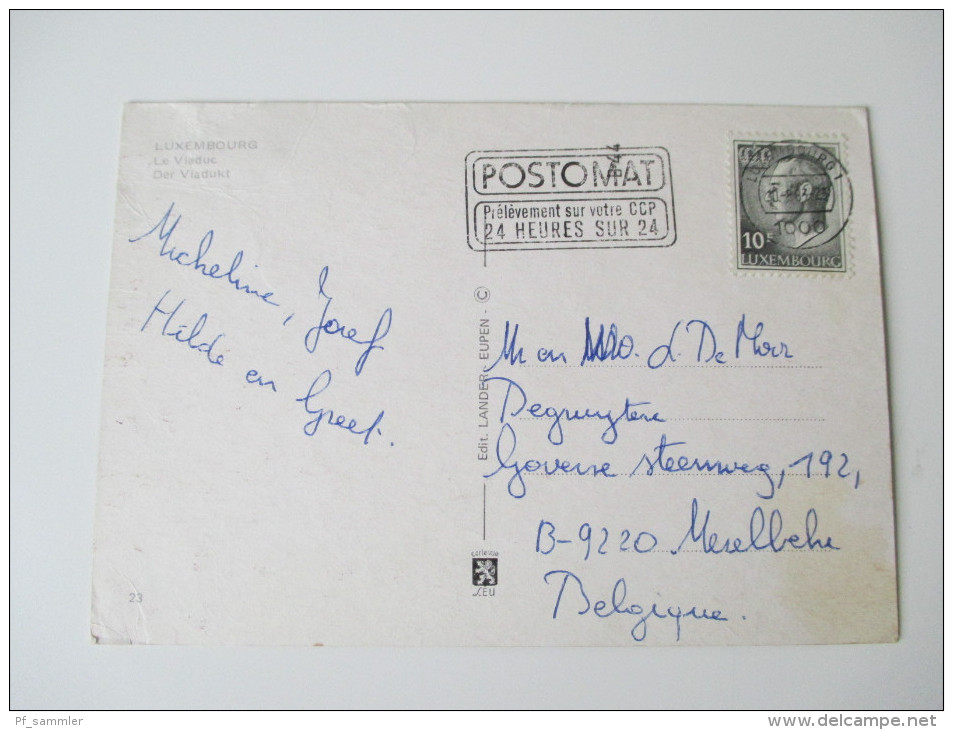 LUXEMBOURG
Le Viaduc
Der Viadukt
POSTOMAT
Prélèvement sur votre CCP
24 HEURES SUR 24
1000
10F
LUXEMBOURG
Micheline, Jozef
Hilde en Greet.
Edit. LANDER - EUPEN - ©
Mr en
L. De Moor
Degruytere
Goverse steenweg, 192,
B-9220 Merelbeke
Belgique.
23
Pf_sammler
www.delcampe.net